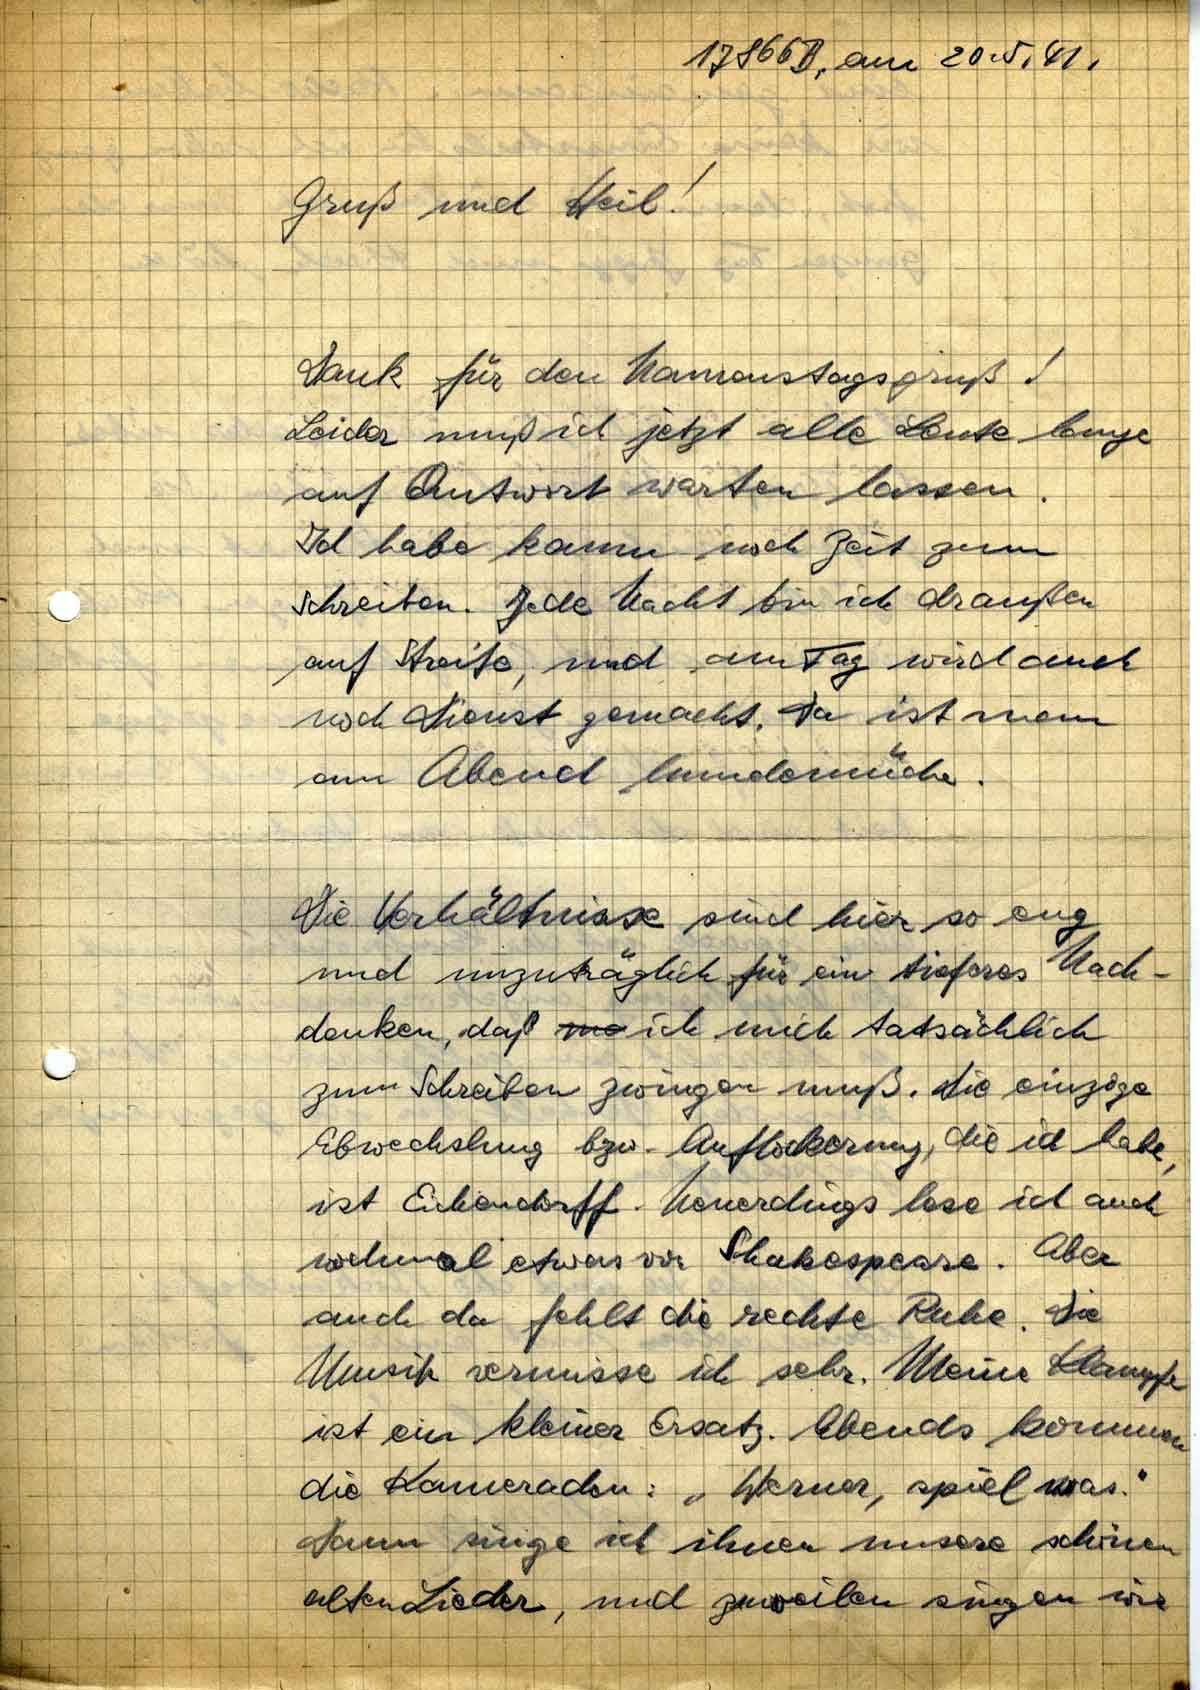 17866B, am 20.5.41.
Gruß und Heil!
Dank für den Namenstagsgruß!
Leider muß ich jetzt alle Leute lange
auf Antwort warten lassen.
Ich habe kaum noch Zeit zum
Schreiben. Jede Nacht bin ich draußen
auf Streife, und am Tag wird auch
noch Dienst gemacht. Da ist man
am Abend hundemüde.
Die Verhältnisse sind hier so eng
und unzuträglich für ein tieferes Nach-
denken, daß ich mich tatsächlich
zum Schreiben zwingen muß. Die einzige
Abwechslung bzw. Auflockerung, die ich habe,
ist Eichendorff. Neuerdings lese ich auch
nochmal etwas von Shakespeare. Aber
auch da fehlt die rechte Ruhe. Die
Musik vermisse ich sehr. Meine Klampfe
ist ein kleiner Ersatz. Abends kommen
die Kameraden: „Werner, spiel was."
Dann singe ich ihnen unsere schönen
alten Lieder, und zuweilen singen wir